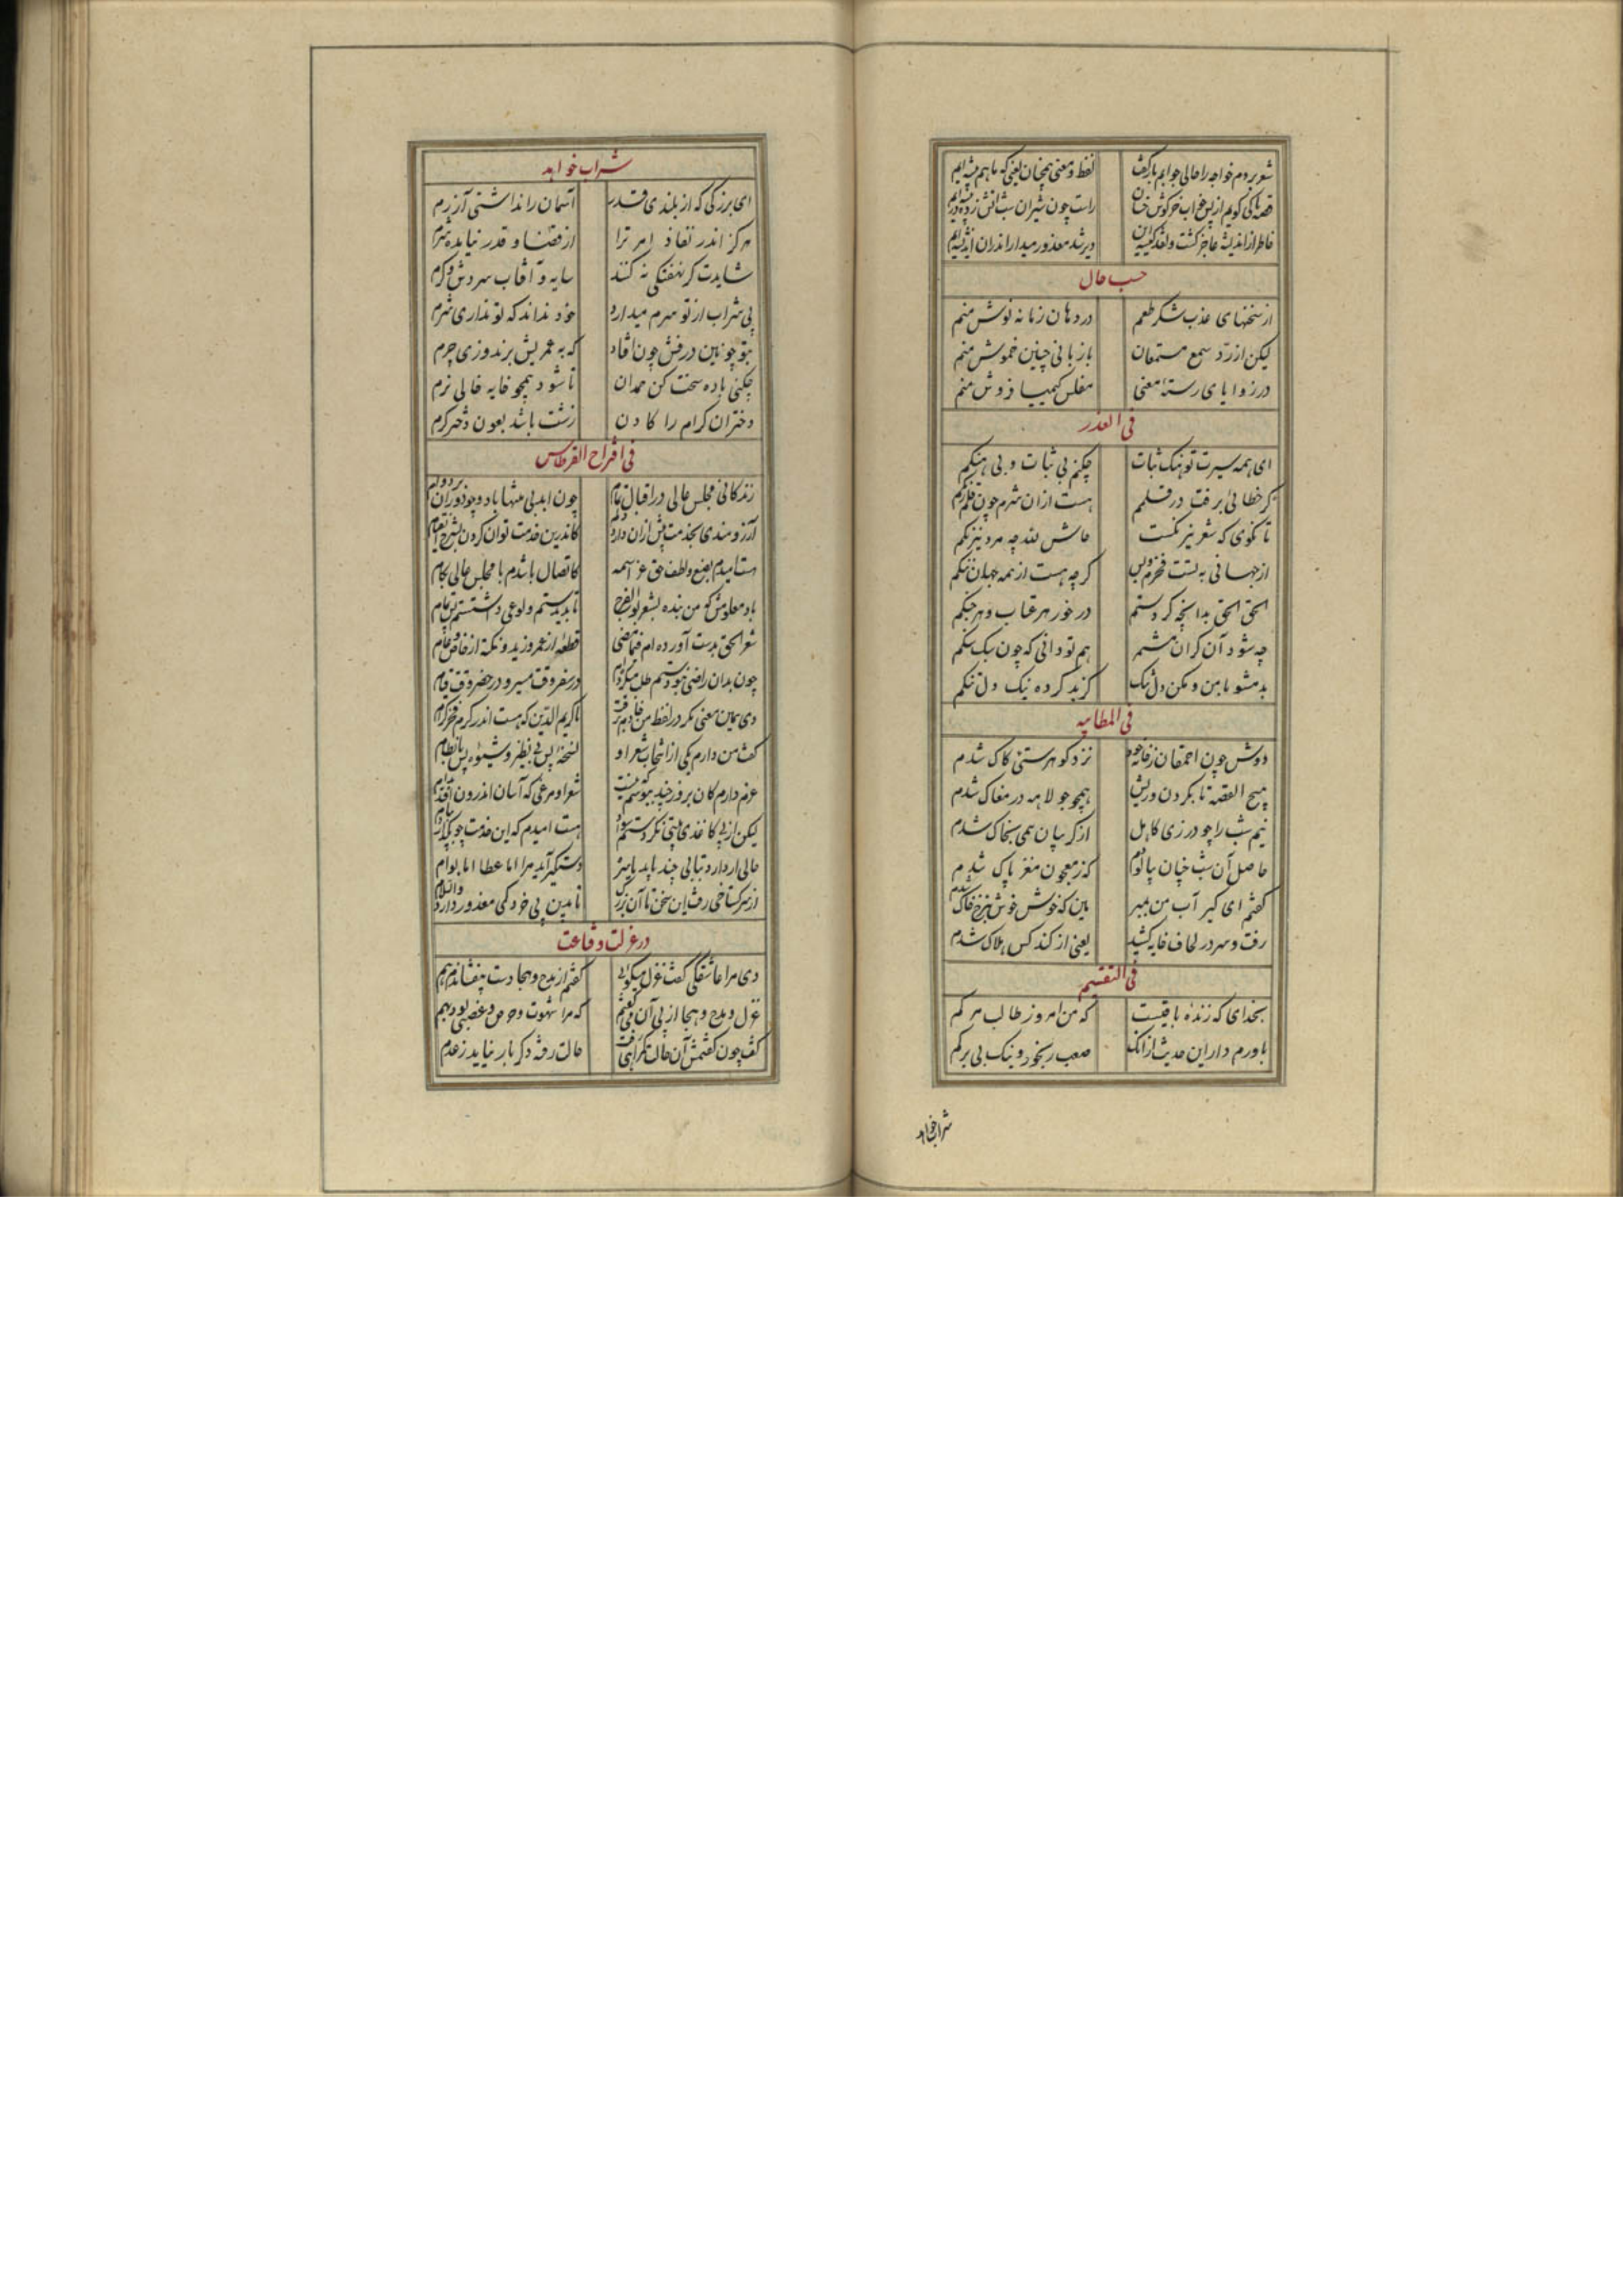 شعر بردم خواجه را حالی جوابم باز گفت لفظ و معنی همچنان یعنی که ما هم پیشه ایم
قصه کی گویم از پس خواب خرگوش راست چون شیران شب
خاطر از اندیشه عاجز گشت ویرشد معذور میدار اندران اندیشه ایم
حسب حال
از سخنهای عذب شکر طعم در دهان زمانه نوش منم
لیکن از رد سمع مستمعان با زبانی چنین خموش منم
در زوایای رسته معنی مفلس کیمیا فروش منم
فی العذر
ای همه سیرت تو هنگ ثبات چکنم بی ثبات و بی هنگم
گر خطائی برفت در قلمم هست ازان شرم چون قلم
تا نگوی که شعر نیز نگفت حاش لله چه مرد نیرنگم
از جهانی به تست فخرم و بس گرچه هست از همه جهان ننگم
الحق الحق بدانچه کردستم در خور هر عتاب و هر جنگم
چه شود آن گران شمر هم تو دانی که چون سبک سنگم
بد مشو با من و مکن دل تنگ کز بد کرده نیک دل تنگم
فی المطایبه
دوش چون احمقان ز خانه خود نزد گوهر ستی کاک شدم
هیچ القصه تا بگردن و ریش همچو جولاهه در مغاک شدم
نیم شب را چو درزی کاهل از گریبان همی بخاک شدم
حاصل آن شب چنان بپالودم که ز معجون مغز پاک شدم
گفتم ای کیر آب من مبر بین که خوش خوش بزیر خاک شدم
رفت و سر در لحاف خایه کشید یعنی از گند کس هلاک شدم
فی التقسیم
بخدای که زنده باقیست که من امروز طالب مرگم
باورم دار این حدیث ازانک صعب رنجور و نیک بی برگم
شراب خواهد
شراب خواهد
ای بزرگی که از بلندی قدر آسمان را نداشتی آزرم
هرگز اندر نفاذ امر ترا از قضا و قدر نیاید شرم
شایدت گر نهفتگی نه کنند سایه و آفتاب سرد و گرم
بی شراب از تو سرم میدارد خود نداند که تو نداری شرم
که به عمریش برندوزی چرم
چکنی باده سخت کن حمدان تا شود همچو خایه حالی نرم
دختران کرام را گادن زشت باشد بعون دختر کرم
فی اقتراح القرطاس
زندگانی مجلس عالی در اقبال تمام چون ابد بی منتها باد و چو دوران بر دوام
آرزومندی بخدمت بیش ازان دارد دلم کاندرین خدمت توان کردن بشرح آنرا تمام
هست امیدم بصنع و لطف حق عز اسمه کاتصال باشدم با مجلس عالی بکام
باد معلومش که من بنده بشعر بوالفرج تا بدیدستم ولوعی داشتستم بس تمام
شعر الحق بدست آورده ام فیما مضی قطعه از عمرو و زید و نکته از خاص و عام
چون بدان راضی نبودستم طلب میکرده ام در سفر وقت مسیر و در حضر وقت قیام
دی همین معنی مگر در لفظ من خادم برفت با کریم الدین که هست اندر کرم فخر کرام
گفت من دارم یکی از انتخاب شعر او نسخه بس بی نظیر و شیوه بس با نظام
عزم دارم کان بروزی چند بنویسم که نیست شعر او مرغی که آسان اندرون افتد بدام
لیکن از بی کاغذی بیتی نکردستم سواد هست امیدم که این خدمت چو بگذارد پیام
حالی ار دارد تیابی چند پاید یا سه دستگیر آید مرا اما عطا اما بوام
از سر گستاخی رفت این سخن با آن بزرگ تا بدین بی خردگی معذور دارد والسلام
در عزلت و قناعت
دی مرا عاشقکی گفت غزل میگوئی گفتم از مدح و هجا دست بیفشاندم هم
غزل و مدح و هجا از پی آن می گفتم که مرا شهوت و حرص و غضبی بود بهم
گفت چون گفتمش آن حالت گمراهی رفت حالت رفته دگر بار نیاید ز عدم